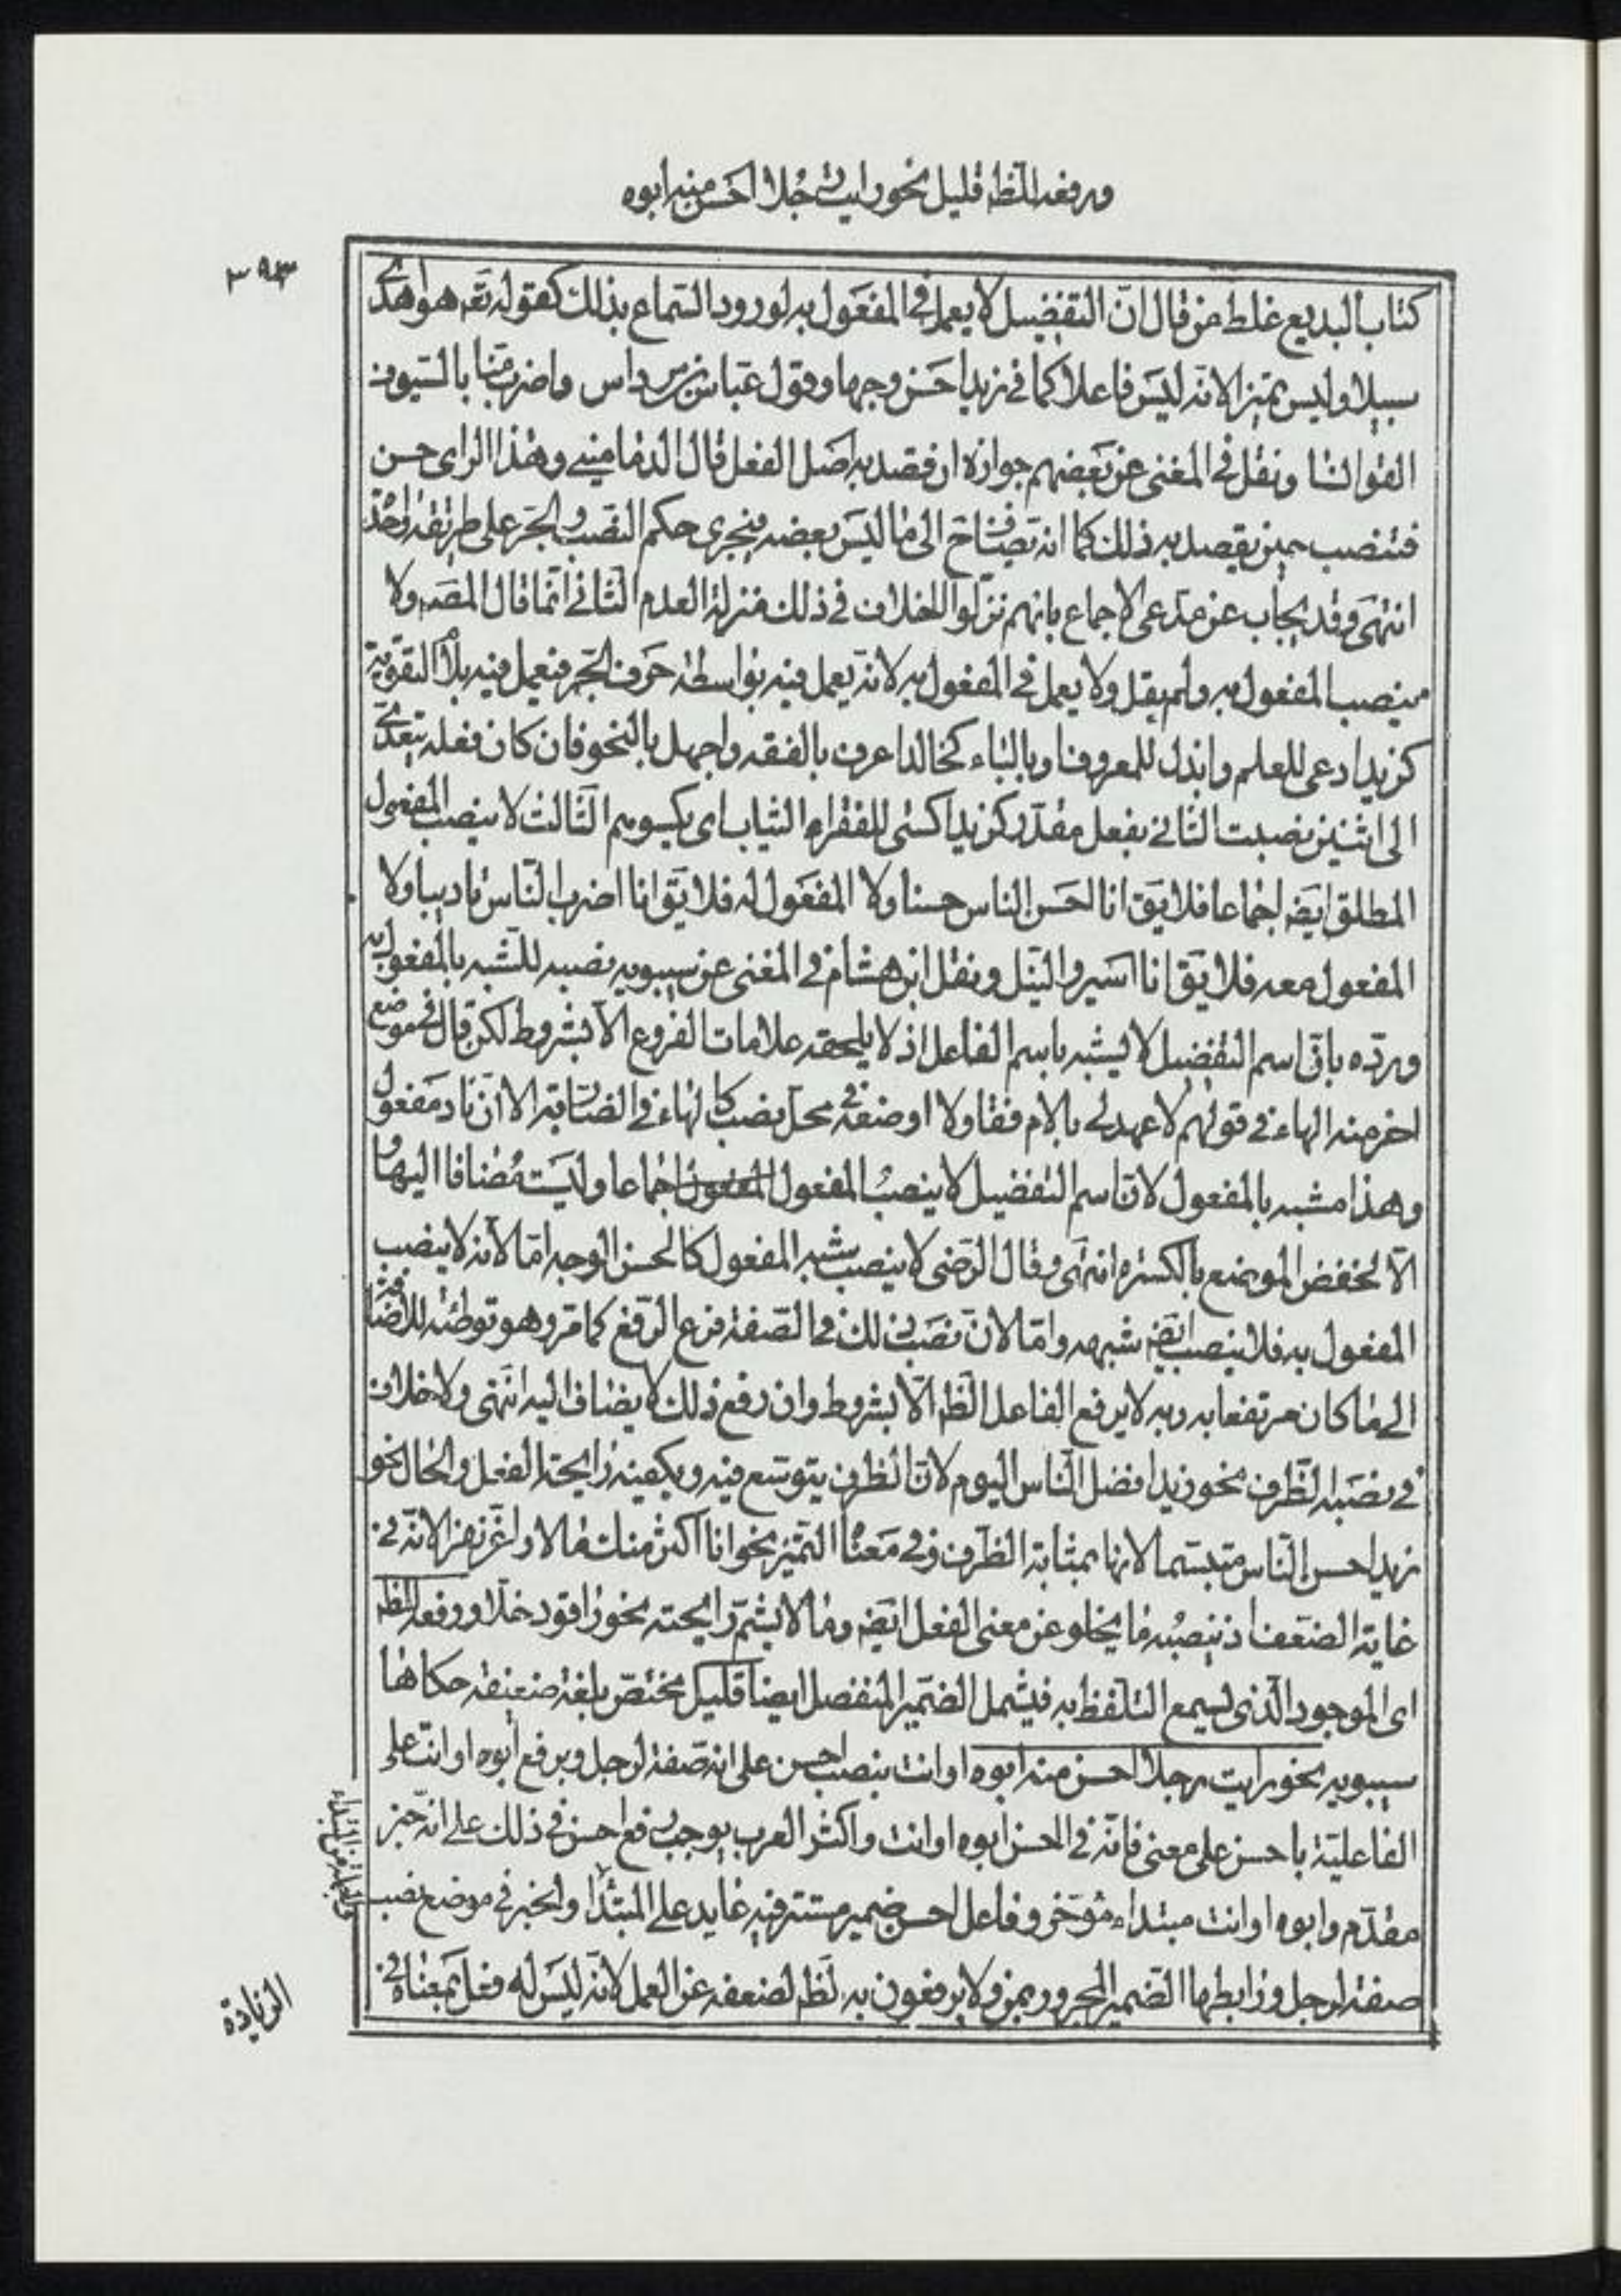 ورفعه الظ قليل نحو رايت رجلا احسن منه ابوه
٣٩٣
كتاب البديع غلط من قال ان التفضيل لا يعمل في المفعول به لورود السماع بذلك كقوله تعه هو اهدى
سبيلا وليس تميزا لانه ليس فاعلا كما في زيد احسن وجها وقول عباس بن مرداس واضرب منا بالسيوف
القوانسا ونقل في المغنى عن بعضهم جوازه ان قصد به اصل الفعل قال الدماميني وهذا الراى حسن
فتنصب حين يقصد به ذلك كما انه تضاف ح الى ما ليس بعضه فيجرى حكم النصب والجر على طريقة واحدة
انتهى وقد يجاب عن مدعى الاجماع بانهم نزلوا الخلاف في ذلك منزلة العدم الثاني انما قال المصه ولا
ينصب المفعول به ولم يقل ولا يعمل في المفعول به لانه يعمل فيه بواسطة حرف الجر فيعمل فيه بلام التقوية
كزيد ادعى للعلم وابذل للمعروف اوبالباء كخالد اعرف بالفقه واجهل بالنحو فان كان فعله يتعدى
الى اثنين نصبت الثاني بفعل مقدر كزيد اكسى للفقراء الثياب اى يكسوهم الثالث لا ينصب المفعول
المطلق ايضه اجماعا فلا يق انا احسن الناس حسنا ولا المفعول له فلا يق انا اضرب الناس تاديبا ولا
المفعول معه فلا يق انا اسير والنيل ونقل ابن هشام في المغنى عن سيبويه نصبه للشبه بالمفعول به
ورده بان اسم التفضيل لا يشبه باسم الفاعل اذ لا يلحقه علامات الفروع الا بشروط لكن قال في موضع
اخر منه الهاء في قولهم لا عهد لي بالام قفا ولا اوضعه في محل نصب كالهاء في الضاربه الا ان ذا مفعول
وهذا مشبه بالمفعول لان اسم التفضيل لا ينصب المفعول اجماعا وليست مضافا اليها و
الا لخفض الموضع بالكسرة انتهى وقال الرضى لا ينصب شبه المفعول كالحسن الوجه اما لانه لا ينصب
المفعول به فلا ينصب ايضه شبهه واما لان نصب ذلك في الصفة فرع الرفع كما مر وهو توطئة للاضافة
الى ما كان مرتفعا به وبه لا يرفع الفاعل الظ الا بشروط وان رفع ذلك لا يضاف اليه انتهى ولا خلاف
في نصبه الظرف نحو زيد افضل الناس اليوم لان الظرف يتوسع فيه ويكفيه رايحة الفعل والحال نحو
زيد احسن الناس متبسما لانها بمثابة الظرف وفي معناه التميز نحو انا اكثر منك مالا واعز نفرا لانه في
غاية الضعف اذ ينصبه ما يخلو عن معنى الفعل ايضه وما لا يشم رايحته نحو راقود خلا ورفعه الظ
اى الموجود الذى يسمع التلفظ به فيشمل الضمير المنفصل ايضا قليل مختص بلغة ضعيفة حكاها
سيبويه نحو رايت رجلا احسن منه ابوه او انت بنصب احسن على انه صفة لرجل وبرفع ابوه او انت على
الفاعلية باحسن على معنى فاته في الحسن ابوه او انت واكثر العرب يوجب رفع احسن في ذلك على انه خبر
مقدم وابوه او انت مبتداء مؤخر وفاعل احسن ضمير مستتر فيه عايد على المبتدا والخبر في موضع نصب
والجملة من المبتداء
صفة لرجل ورابطها الضمير المجرور بمن ولا يرفعون به الظ لضعفه عن العمل لانه ليس له فعل بمعناه في
الزيادة